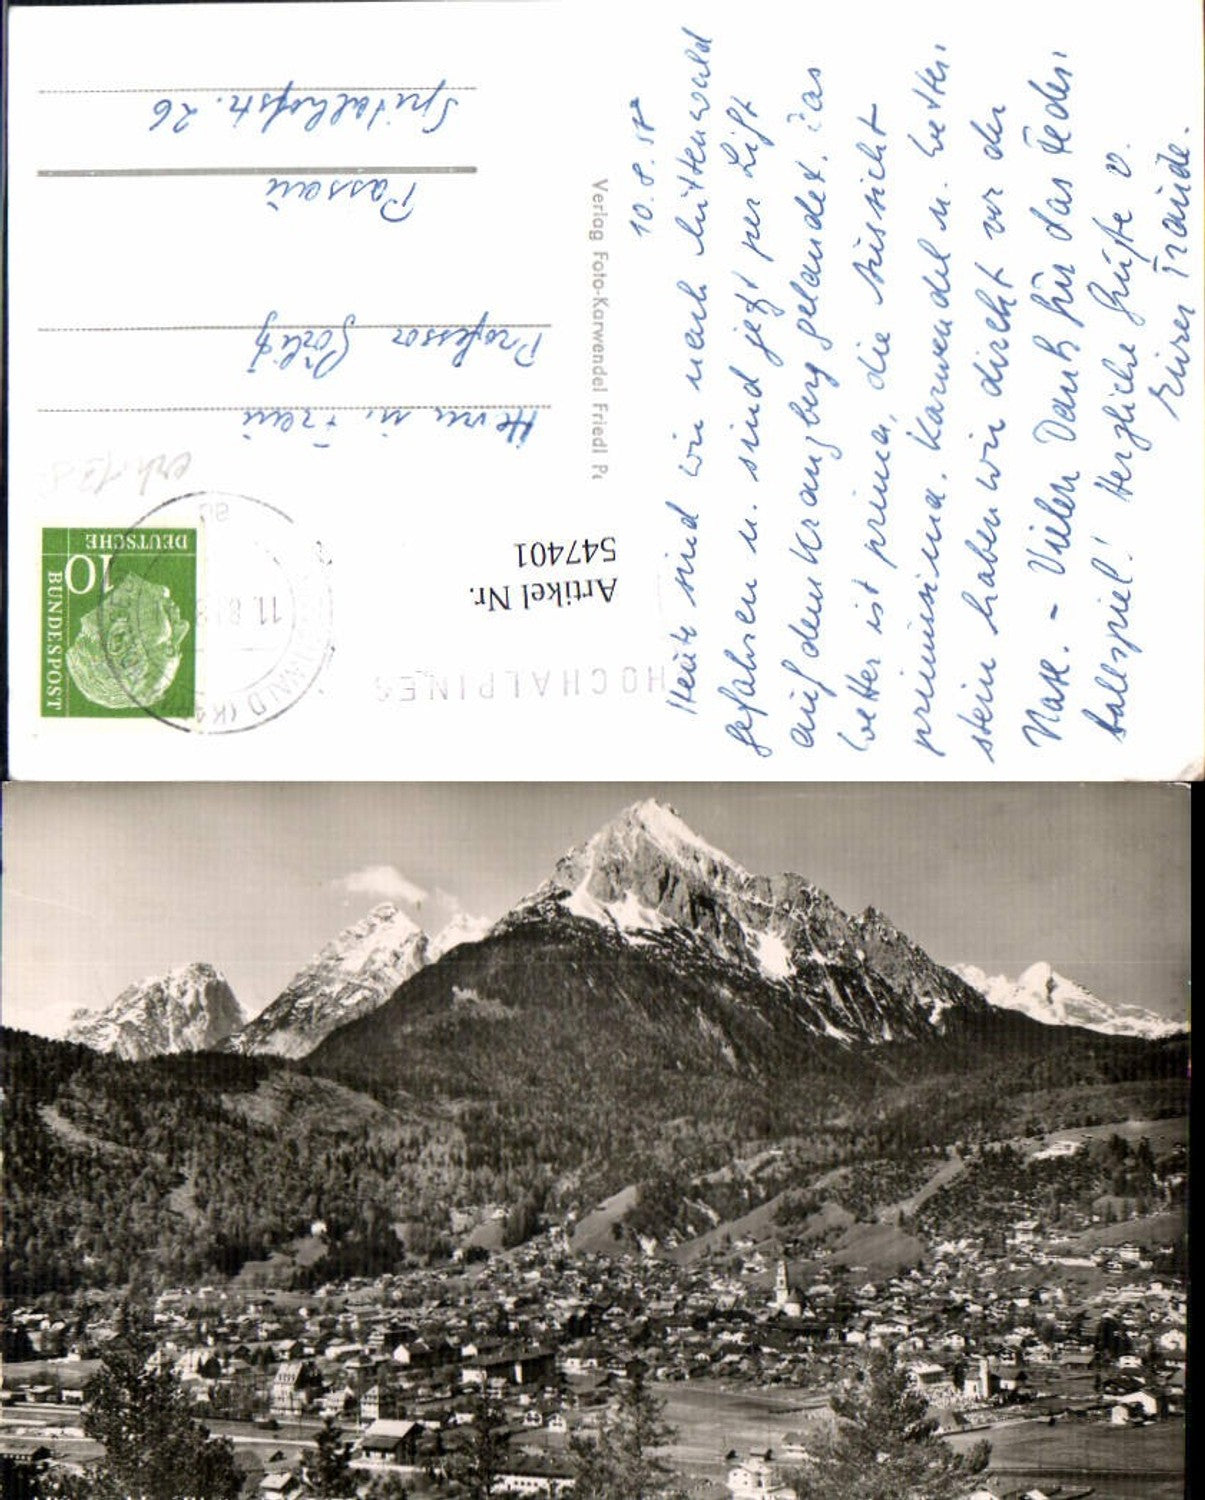 10.8.57
Heute sind wir nach Mittenwald
gefahren u. sind jetzt per Lift
auf dem Kranzberg gelandet. Das
Wetter ist prima, die Aussicht
primissima. Karwendel u. Wetter-
stein haben wir direkt vor der
Nase. - Vielen Dank für das Feder-
ballspiel! Herzliche Grüße v.
Eurer Traude.
Verlag Foto-Karwendel Friedl
Herrn u. Frau
Professor
Passau
Spitalhofstr. 26
Artikel Nr.
547401
HOCHALPINES
11.8.
DEUTSCHE
BUNDESPOST
10